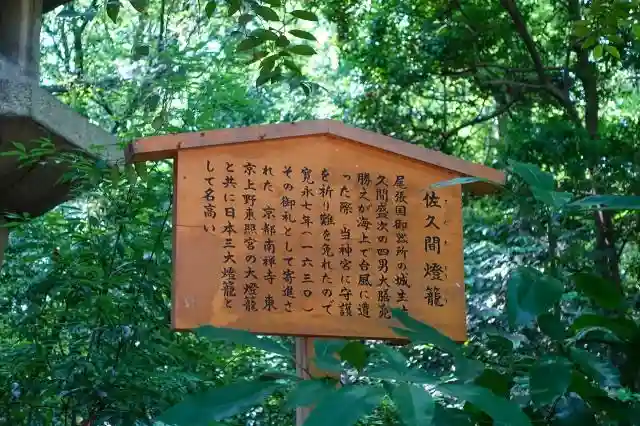 佐久間燈籠
尾張国御器所の城主佐
久間盛次の四男大膳亮
勝之が海上で台風に遭
った際 当神宮に守護
を祈り難を免れたので
寛永七年(一六三〇)
その御礼として寄進さ
れた 京都南禅寺 東
京上野東照宮の大燈籠
と共に日本三大燈籠と
して名高い